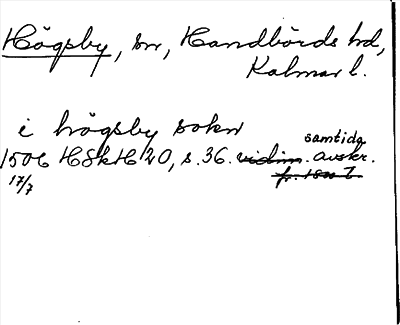 Högsby, sn, Handbörds hd,
Kalmar l.
i högsby sokn
samtida
1506 HSkH 20, s. 36. vidim. avskr.
17/7